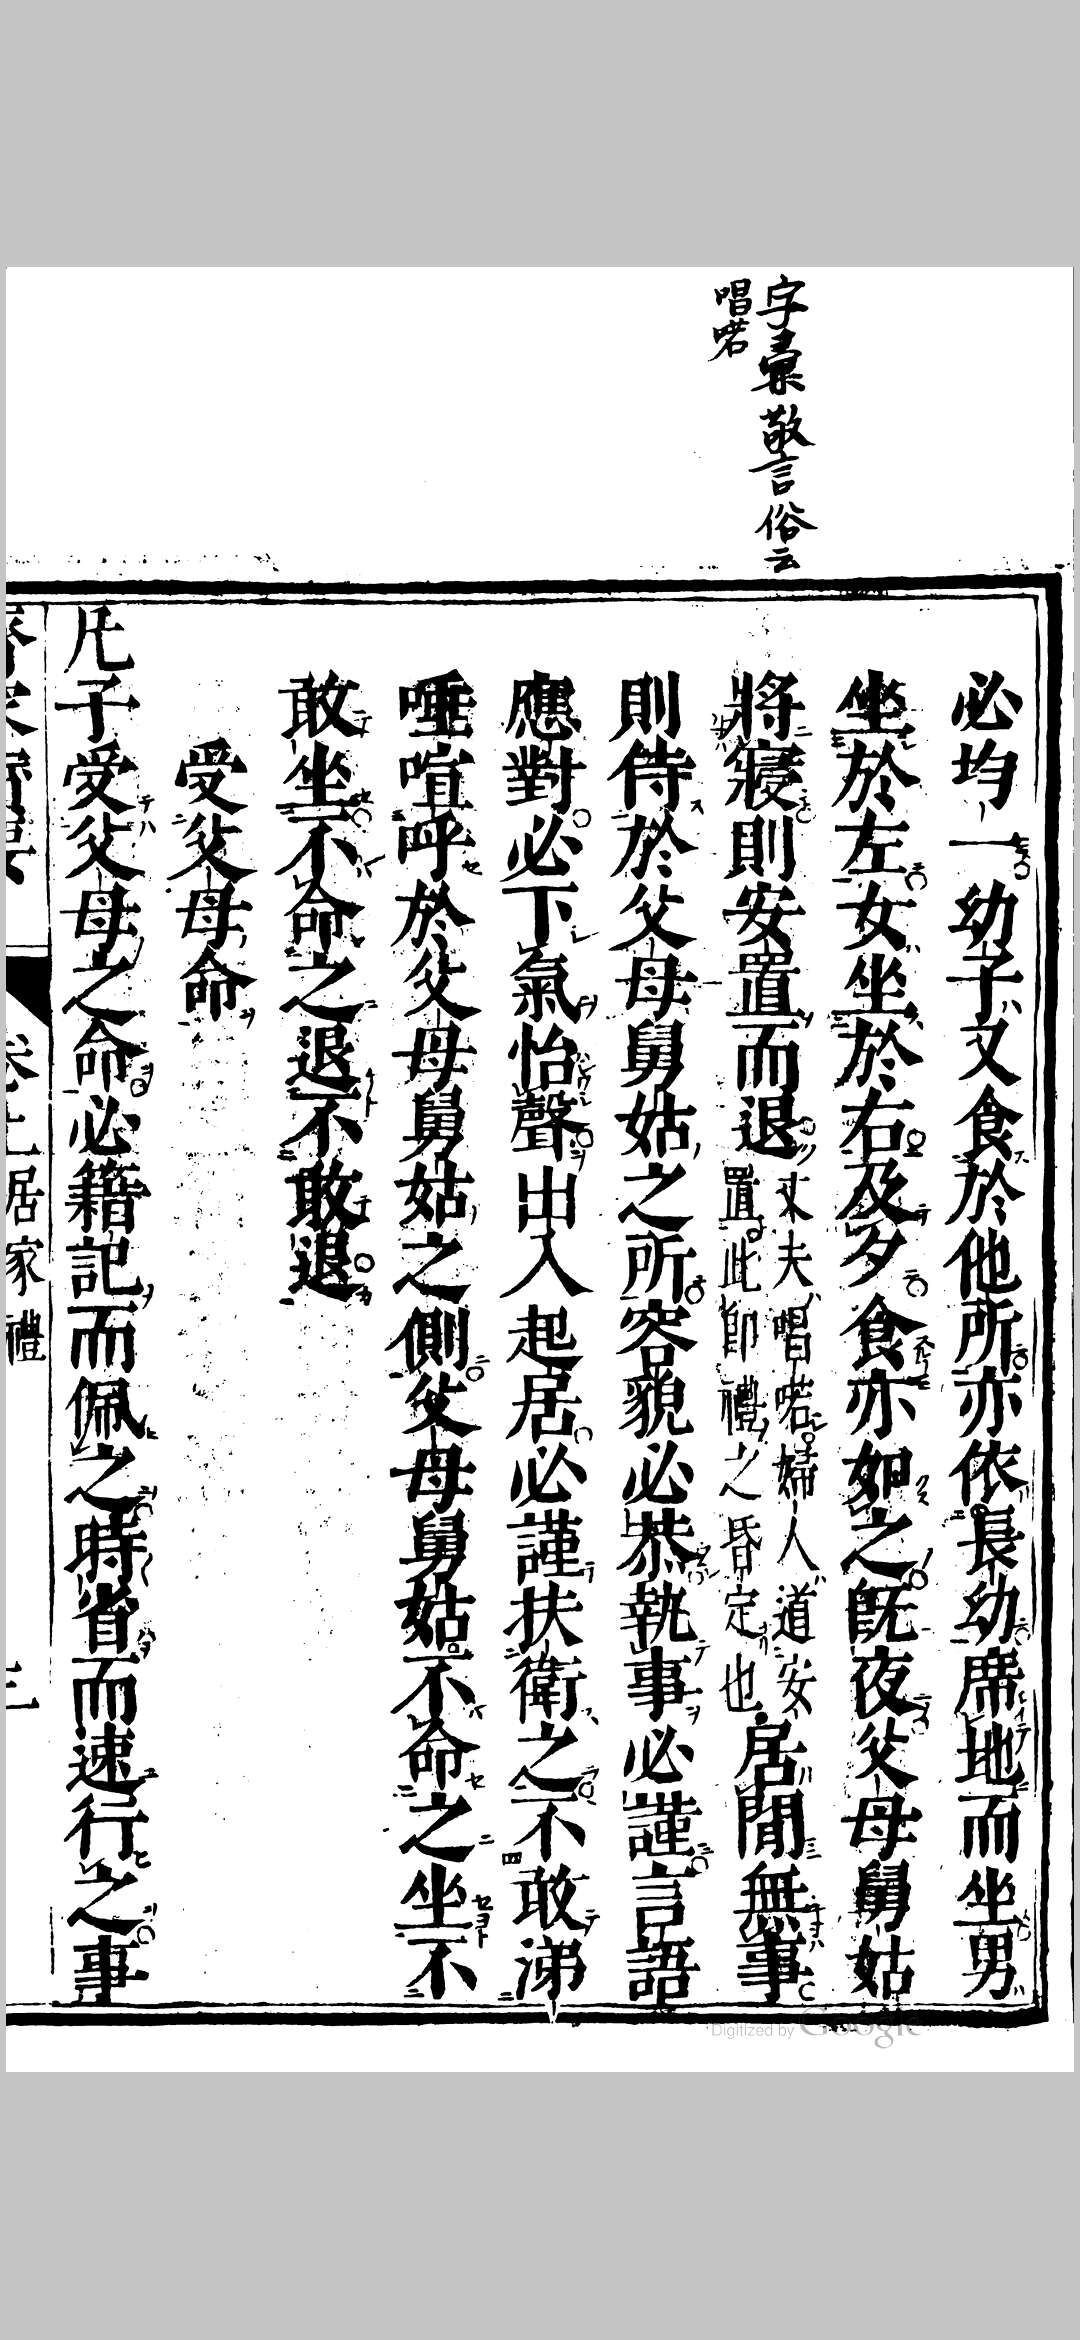 字彙敬言俗云
唱喏
必均一幼子又食於他所亦依長幼席地而坐男
坐於左女坐於右及夕食亦如之既夜父母舅姑
將寢則安置而退丈夫唱喏婦人道安置此即禮之昏定也居閒無事
則侍於父母舅姑之所容貌必恭執事必謹言語
應對必下氣怡聲出入起居必謹扶衛之不敢涕
唾喧呼於父母舅姑之側父母舅姑不命之坐不
敢坐不命之退不敢退
受父母命
凡子受父母之命必籍記而佩之時省而速行之事
居家禮
三
Digitized by Google